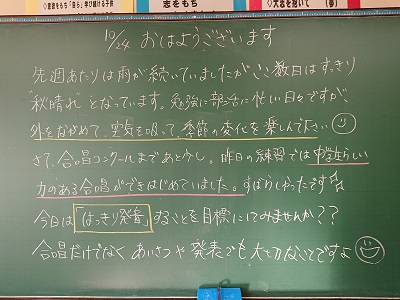 ◇意欲をもち「自ら」学び続ける子供
志をもち
大志を抱いて
(夢)
10/24 おはようございます
先週あたりは雨が続いていましたが、ここ数日はすっきり
"秋晴れ"となっています。勉強に部活に忙しい日々ですが、
外をながめて、空気を吸って、季節の変化を楽しんでください
さて、合唱コンクールまであと少し。昨日の練習では中学生らしい
力のある合唱ができはじめていました。すばらしかったです
今日は「はっきり発音」することを目標にしてみませんか??
合唱だけでなく あいさつや発表でも大切なことですよ